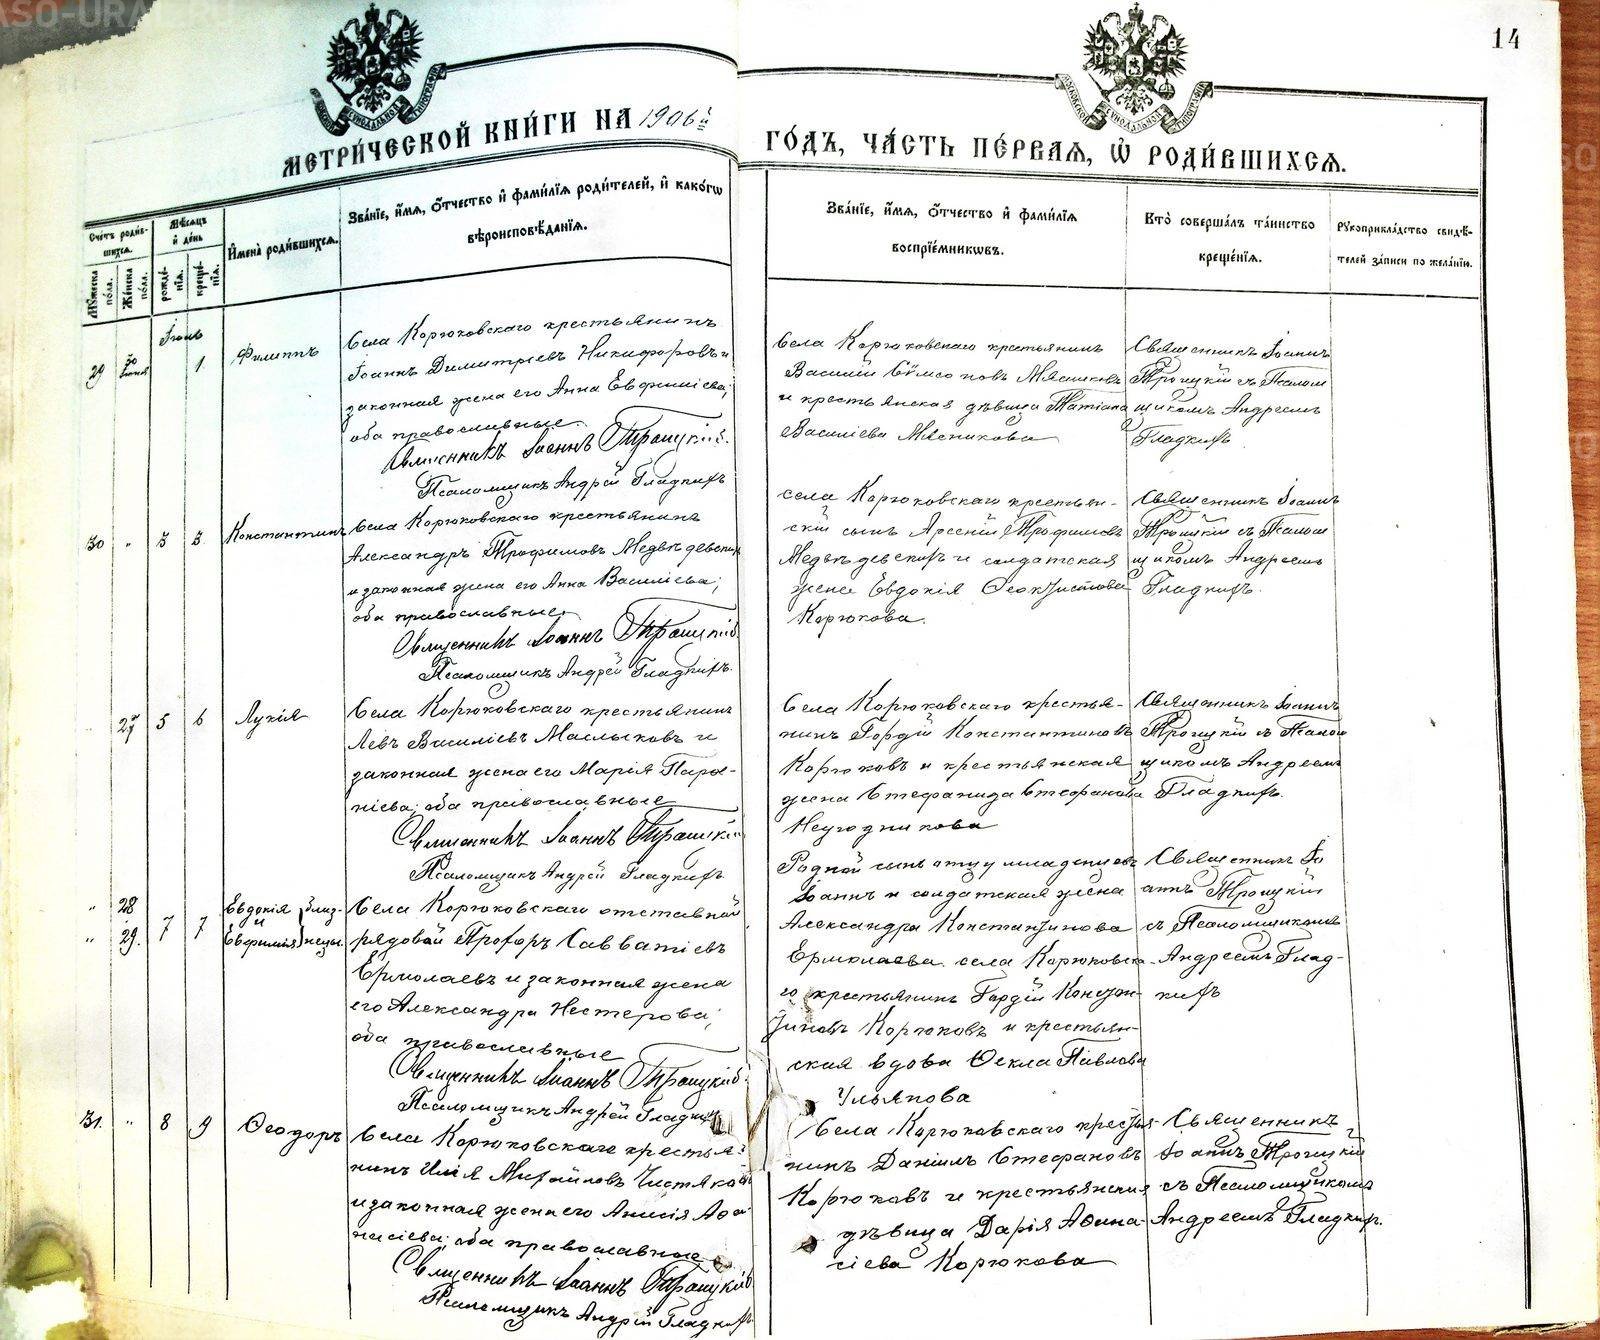 14
МЕТРИ́ЧЕСКОЙ КНИ́ГИ НА 1906й
ГО́ДЪ, ЧА́СТЬ ПЕ́РВАЯ, Ѡ҆ РОДИ́ВШИХСЯ.
Сче́тъ роди́в-
шихся.
Му́жеска по́ла.
Же́нска по́ла.
Мѣ́сяцъ
и҆ де́нь
рожде́-
нїя.
креще́-
нїя.
И҆мена̀ роди́вшихся.
Зва́нїе, и҆́мя, ѻ҆́тчество и҆ фами́лїя роди́телей, и҆ како́гѡ
вѣроисповѣ́данїя.
Зва́нїе, и҆́мя, ѻ҆́тчество и҆ фами́лїя
воспрїе́мникѡвъ.
Кто̀ соверша́лъ та́инство
креще́нїя.
Рукоприкла́дство свидѣ́-
телей за́писи по жела́нїю.
Іюль
29
30
Іюня
1
Филиппъ
Села Корюковскаго крестьянинъ
Іоаннъ Димитріевъ Никифоровъ и
законная жена его Анна Евфиміева;
оба православные.
Священникъ Іоаннъ Троицкій.
Псаломщикъ Андрей Гладкихъ
Села Корюковскаго крестьянинъ
Василій Сѵмеоновъ Мясниковъ
и крестьянская дѣвица Татіана
Васильева Мясникова
Священникъ Іоаннъ
Троицкій съ Псалом
щикомъ Андреемъ
Гладкихъ
30 " 3 3
Константинъ
Села Корюковскаго крестьянинъ
Александръ Трофимовъ Медвѣдевскихъ
и законная жена его Анна Василіева;
оба православные.
Священникъ Іоаннъ Троицкій.
Псаломщикъ Андрей Гладкихъ.
села Корюковскаго крестьян-
скій сынъ Арсеній Трофимовъ
Медвѣдевскихъ и солдатская
жена Евдокія Ѳеоктистова
Корюкова.
Священникъ Іоаннъ
Троицкій съ Псалом
щикомъ Андреемъ
Гладкихъ.
27 5 6
Лукія
Села Корюковскаго крестьянинъ
Левъ Василіевъ Маслыковъ и
законная жена его Марія Пары-
гіева; оба православные
Священникъ Іоаннъ Троицкій
Псаломщикъ Андрей Гладкихъ
Села Корюковскаго крестья-
нинъ Гордій Константиновъ
Корюковъ и крестьянская
жена Стефанида Стефанова
Неугодникова
Священникъ Іоаннъ
Троицкій съ Псалом
щикомъ Андреемъ
Гладкихъ.
" 28
" 29. 7 7
Евдокія } близ-
и
Евфимія } нецы.
Села Корюковскаго отставной
рядовой Прохоръ Савватіевъ
Ермолаевъ и законная жена
его Александра Нестерова;
оба православные
Священникъ Іоаннъ Троицкій
Псаломщикъ Андрей Гладкихъ
Родной сынъ отцу младенцевъ
Іоаннъ и солдатская жена
Александра Константинова
Ермолаева. села Корюковска-
го крестьянинъ Гордій Констан-
тиновъ Корюковъ и крестьян-
ская вдова Ѳекла Павлова
Ульянова
Священникъ Іо
аннъ Троицкій
съ Псаломщикомъ
Андреемъ Глад-
кихъ
31. " 8 9
Ѳеодоръ
Села Корюковскаго крестья-
нинъ Илія Михайловъ Чистяковъ
и законная жена его Анисія Аѳа-
насіева; оба православные
Священникъ Іоаннъ Троицкій
Псаломщикъ Андрей Гладкихъ
Села Корюковскаго крестья-
нинъ Даніилъ Стефановъ
Корюковъ и крестьянская
дѣвица Дарія Аѳана-
сіева Корюкова
Священникъ
Іоаннъ Троицкій
съ Псаломщикомъ
Андреемъ Гладкихъ.